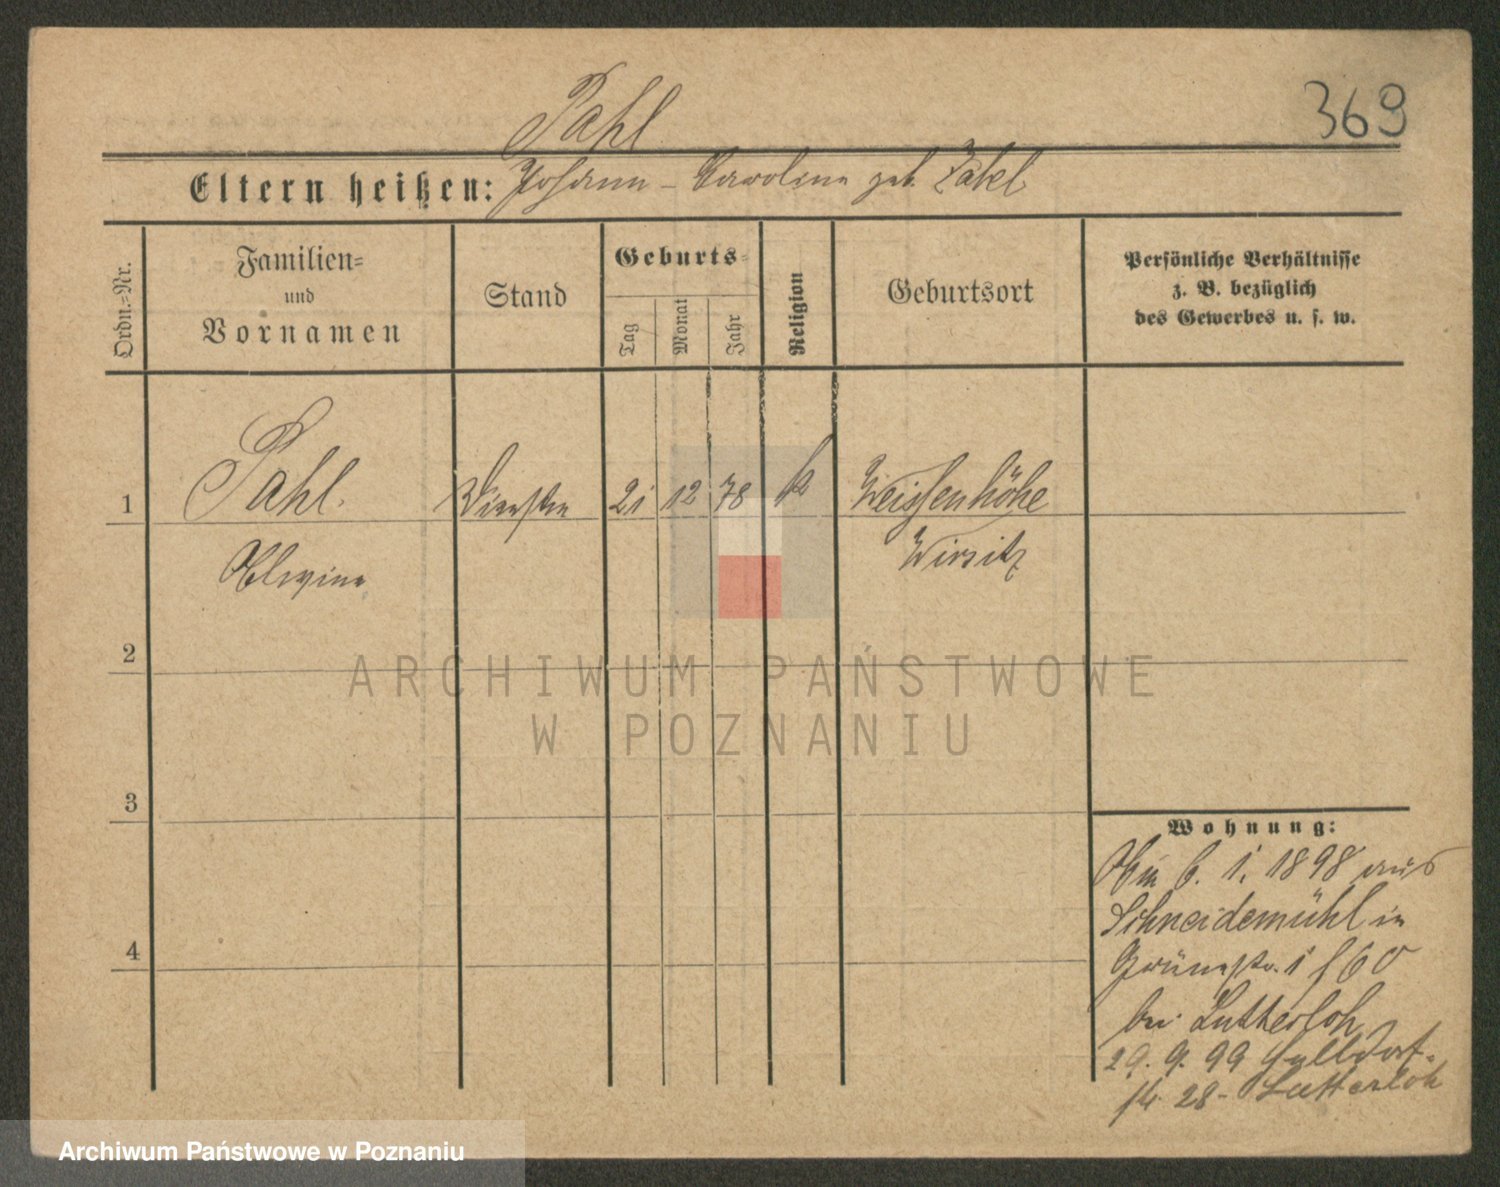 Pahl
369
Eltern heißen: Johann – Caroline geb. Zabel
Ordn.=Nr.
Familien=
und
Vornamen
Stand
Geburts=
Tag
Monat
Jahr
Religion
Geburtsort
Persönliche Verhältnisse
z. B. bezüglich
des Gewerbes u. s. w.
1
Pahl.
21 12 78 k
Weissenhöhe
Wirsitz
2
3
4
Wohnung:
6. 1. 1898 aus
Schneidemühl in
Grünestr. 1
bei Lutterloh
29. 9. 99
28 - Lutterloh
ARCHIWUM PAŃSTWOWE
W POZNANIU
Archiwum Państwowe w Poznaniu